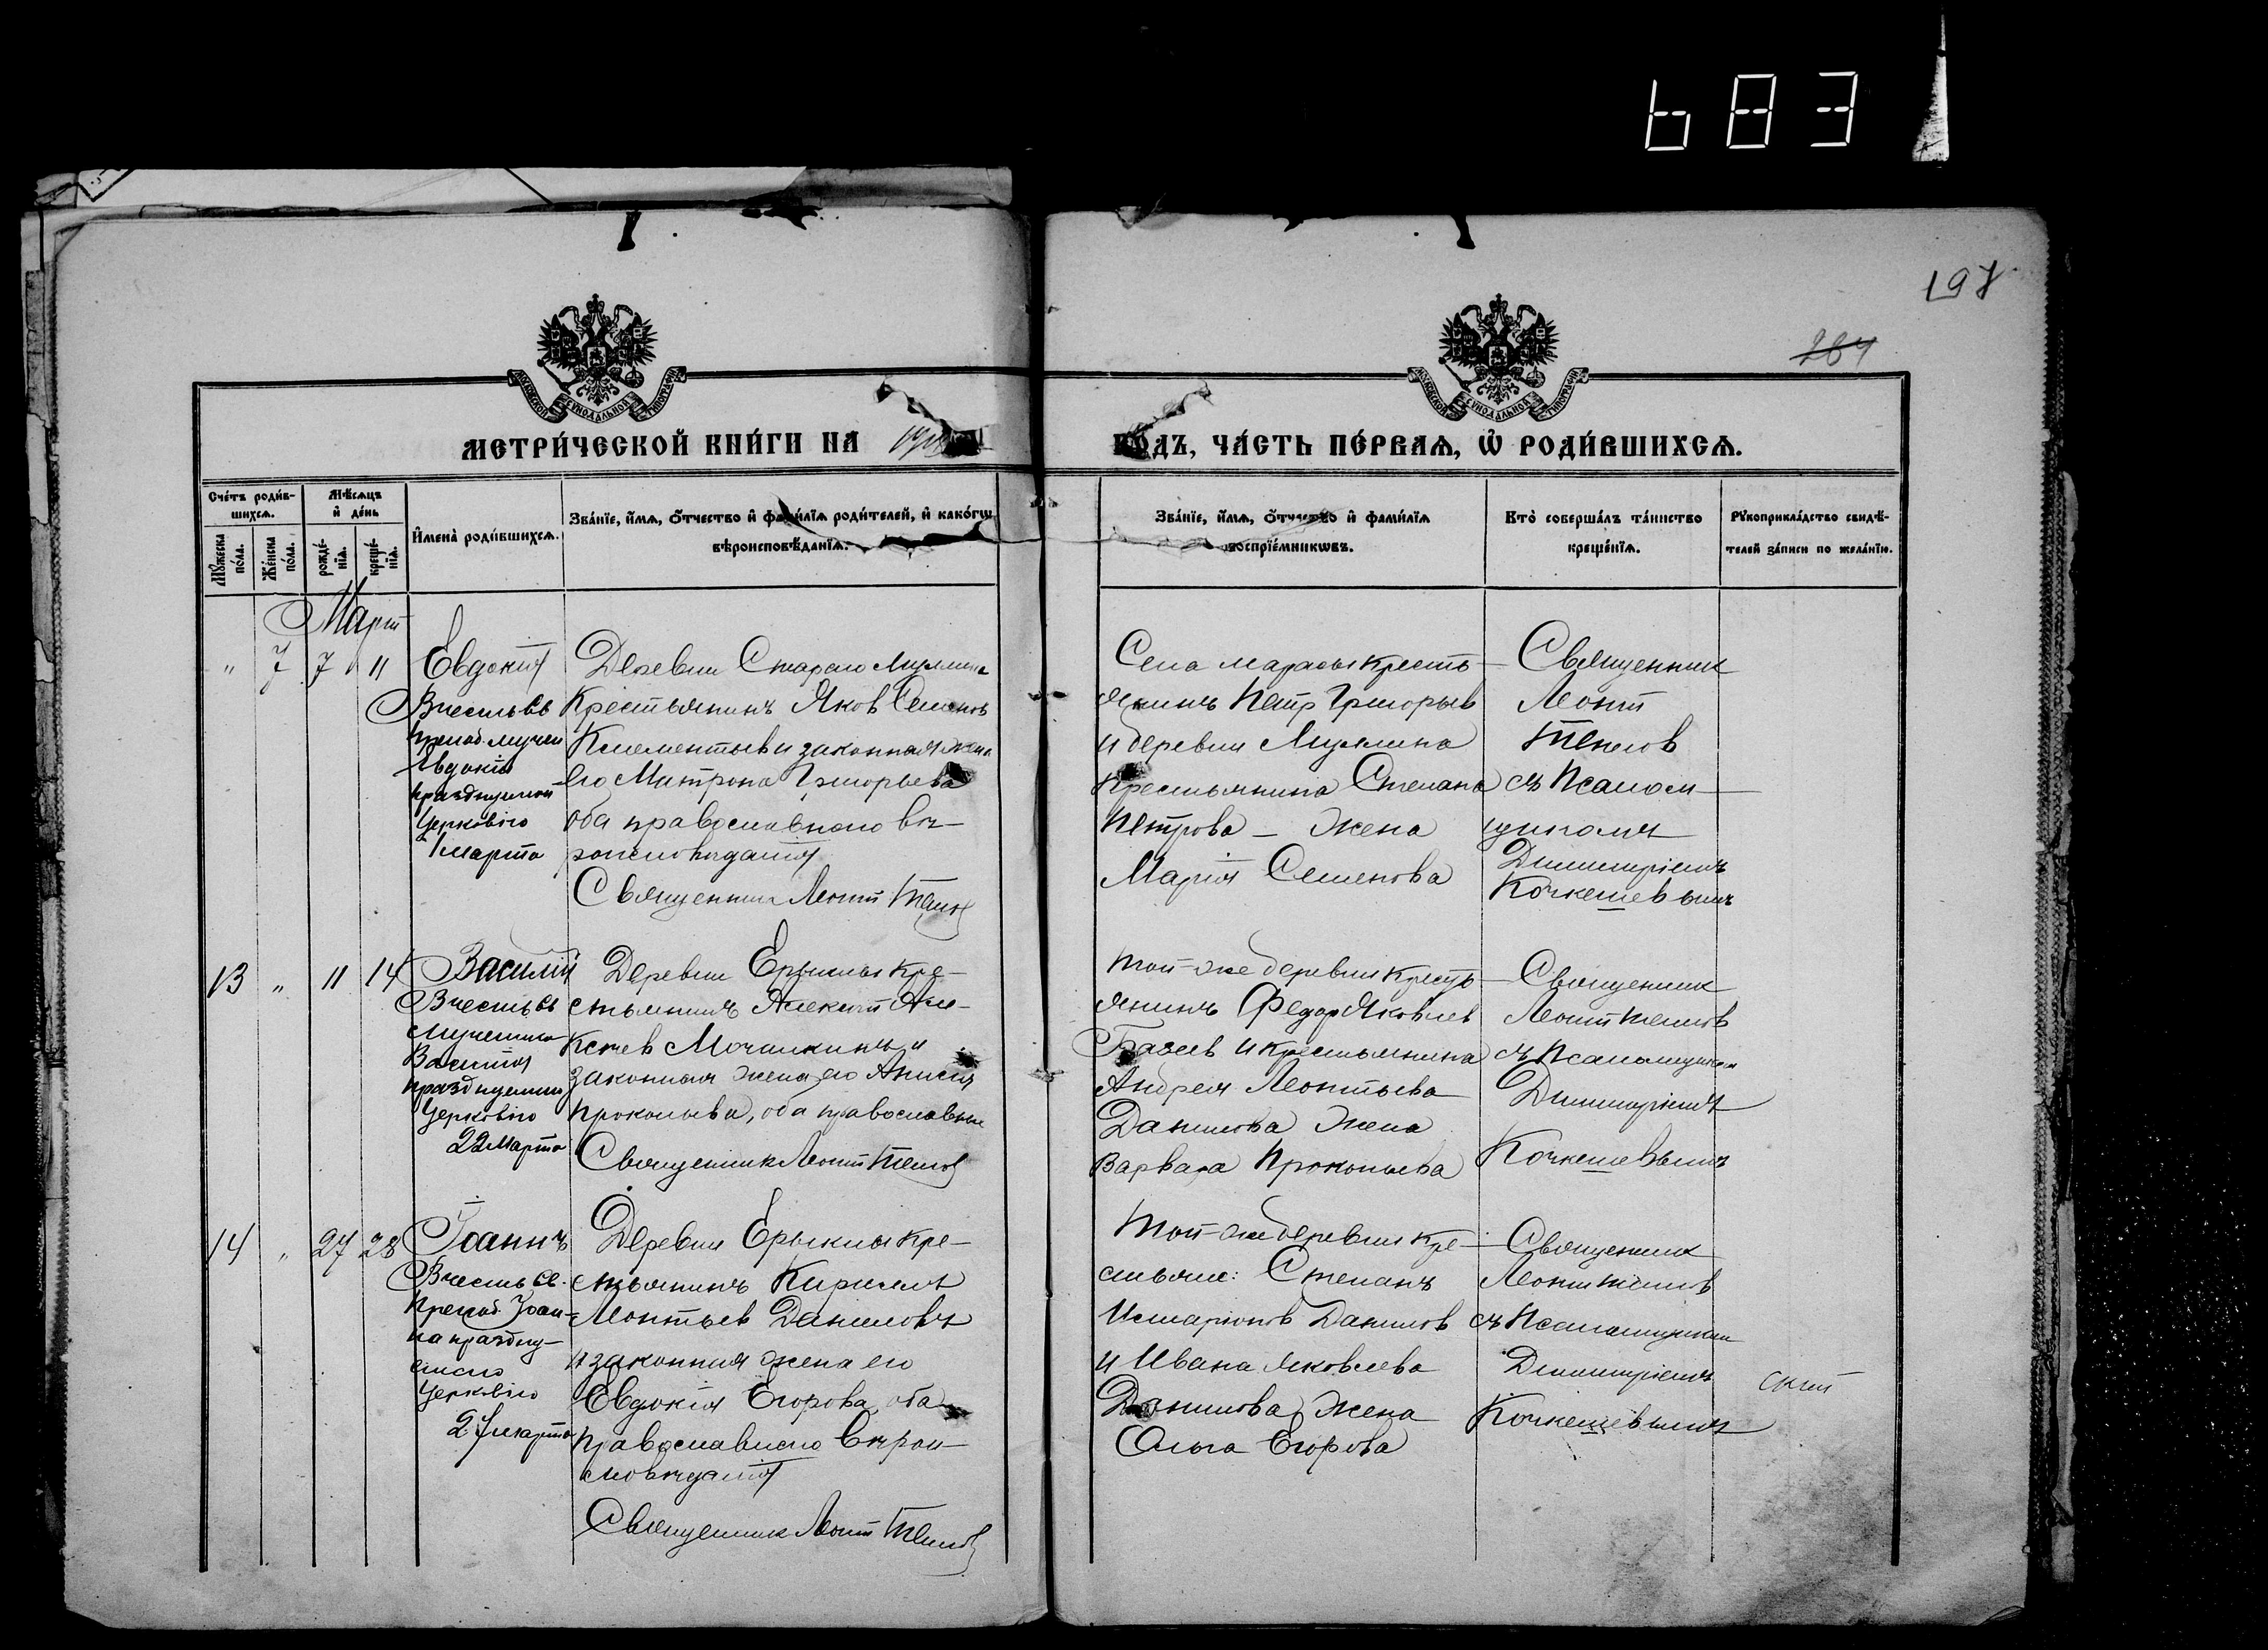 683
197
264
МОСКОВСКОЙ СѴНОДАЛЬНОЙ ТИПОГРАФІИ
МОСКОВСКОЙ СѴНОДАЛЬНОЙ ТИПОГРАФІИ
МЕТРИ́ЧЕСКОЙ КНИ́ГИ НА
ГОДЪ, ЧА́СТЬ ПЕ́РВАѦ, Ѡ҆ РОДИ́ВШИХСѦ.
Сче́тъ роди́в-
шихсѧ.
Мꙋ́жеска
по́ла.
Же́нска
по́ла.
Мѣ́сѧцъ
и҆ де́нь
рожде́-
нїѧ.
креще́-
нїѧ.
И҆мена̀ роди́вшихсѧ.
Зва́нїе, и҆́мѧ, ѻ҆́тчество и҆ фами́лїѧ роди́телей, и҆ како́гѡ
вѣроисповѣ́данїѧ.
Зва́нїе, и҆́мѧ, ѻ҆́тчество и҆ фами́лїѧ
воспрїе́мникѡвъ.
Кто̀ соверша́лъ та́инство
креще́нїѧ.
Рꙋкоприкла́дство свидѣ́-
телей за́писи по жела́нїю.
Март
" 7 7 11
Евдокія
В честь св
препод. мучен
Евдокіи
празднуемой
Церковію
1 марта
Деревни Стараго
Крестьянинъ Яков Семенов
Клементьев и законная жена
его Матрона Григорьева
оба православного вѣ-
роисповѣданія
Священник Леонт
Села крестъ-
янинъ Петр Григорьев
и деревни
Крестьянина Степана
Петрова - жена
Марія Семенова
Священник
Леонт
съ Псалом-
щикомъ
Димитріемъ
Кочкешевымъ
13 " 11 14
Василій
В честь св
Мученика
Василія
празднуемаго
Церковію
22 Марта
Деревни Ерыклы кре-
стьянинъ Алексѣй Але-
ксѣев Мочалкинъ и
законная жена его Анисія
Прокопьева, оба православные
Священник Леонт
Той-же деревни кресть-
янинъ Федор Яковлев
и крестьянина
Андрея Леонтьева
Данилова жена
Варвара Прокопьева
Священник
Леонт
съ Псаломщиком
Димитріемъ
Кочкешевымъ
14 " 27 28
Іоаннъ
В честь св.
Препод. Іоан-
на праздну-
емаго
Церковію
27 марта
Деревни Ерыклы кре-
стьянинъ Кириллъ
Леонтьев Даниловъ
и законная жена его
Евдокія Егорова, оба
православнаго вѣрои-
сповѣданія
Священник Леонт
Той-же деревни кре-
стьяне: Степанъ
Иларіонов Данилов
и Ивана Яковлева
Данилова жена
Ольга Егорова
Священник
Леонт
съ Псаломщиком
Димитріемъ
Кочкешевымъ